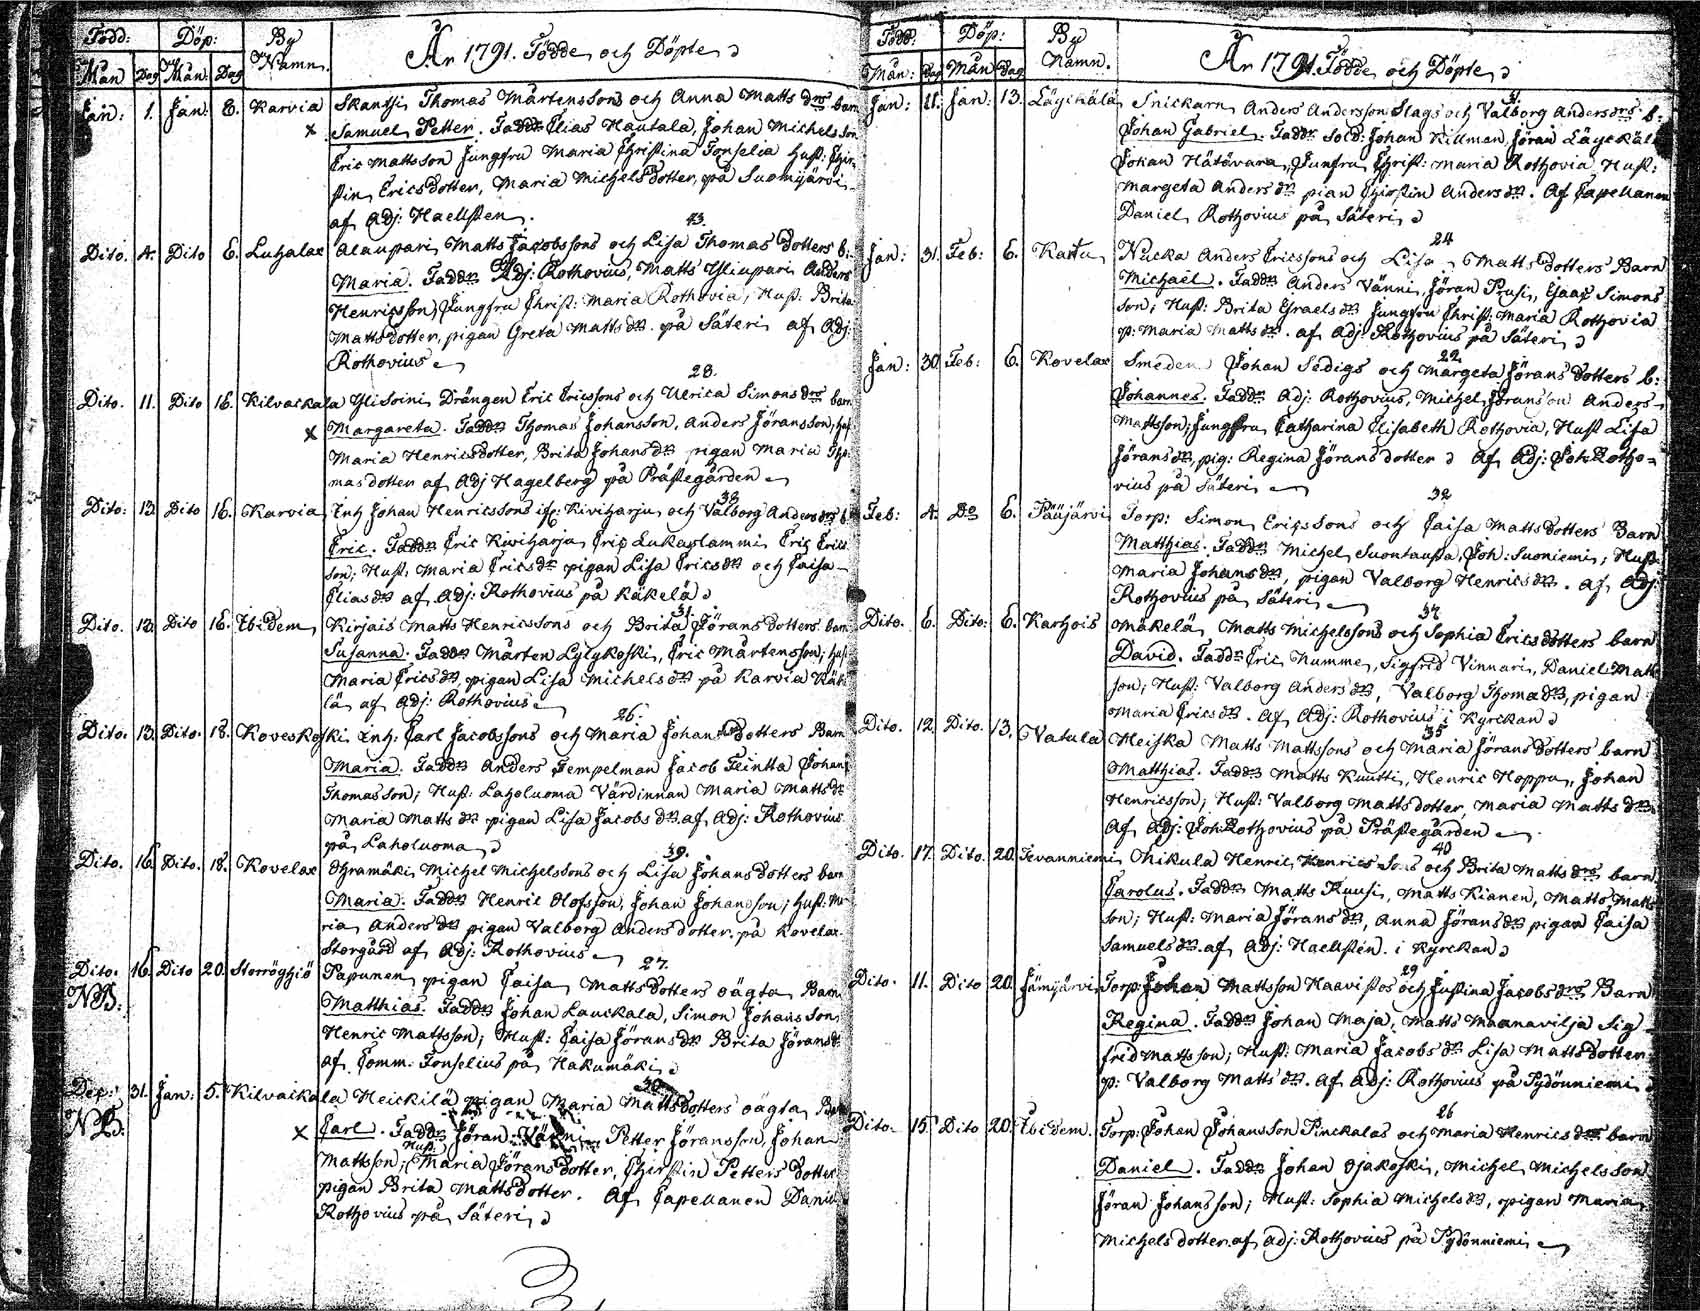 Född: Döp: By Namn. År 1791. Födde och Döpte
Mån Dag Mån: Dag
Jan: 1. Jan: 6. Karvia Skantsi Thomas Mårtenssons och Anna Matts drs barn
x Samuel Petter. Faddr Elias Hautala, Johan Michelsson
Eric Mattsson Jungfru Maria Christina Forselia Hust: Chir
stin Ericsdotter, Maria Michelsdotter, på Suomijärvi
af Adj: Haellsten.
43.
Dito. 4. Dito 6. Luhalax Alaupari Matts Jacobssons och Lisa Thomasdotters b:
Maria. Faddr Adj: Rothovius, Matts Yliupari Anders
Henricsson, Jungfru Christ: Maria Rothovia, Hust: Brita
Mattsdotter, pigan Greta Matts dr. på Säteri af Adj:
Rothovius
28.
Dito. 11. Dito 16. Kilvackala Ylisoini Drängen Eric Ericssons och Ulrica Simons drs barn
x Margareta. Faddr Thomas Johansson, Anders Jöransson, hust
Maria Henricsdotter, Brita Johans dr pigan Maria Tho
mas dotter af Adj Hagelberg på Prästegården
38
Dito: 13 Dito 16. Karvia Inh Johan Henricssons Kiviharju, och Valborg Anders drs b
Eric. Faddr Eric Kiviharju Eric Lukaslammi Eric Erics
son; Hust: Maria Erics dr pigan Lisa Erics dr och Caisa
Elias dr af Adj: Rothovius på Käkelä
31.
Dito. 12 Dito 16. Ibidem Kirjais Matts Henricssons och Brita Jöransdotters barn
Susanna. Faddr Mårten Lylykoski, Eric Mårtensson; hust
Maria Erics dr, pigan Lisa Michels dr på Karvia Käke
lä af Adj: Rothovius
26.
Dito. 13. Dito. 18. Koveskoski Inh: Carl Jacobssons och Maria Johansdotters Barn
Maria. Faddr Anders Tempelman Jacob Feintta Johan
Thomasson; Hust: Laholuoma Värdinnan Maria Matts dr
Maria Matts dr pigan Lisa Jacobs dr. af Adj: Rothovius
på Laholuoma
39.
Dito. 16. Dito. 18. Kovelax Ohramäki Michel Michelssons och Lisa Johansdotters barn
Maria. Faddr Henric Olofsson, Johan Johansson; hust: Ma
ria Anders dr pigan Valborg Andersdotter. på Kovelax
Storgård af Adj: Rothovius
27.
Dito. 16. Dito 20. Storröyhiö Papunen pigan Caisa Mattsdotters oägta Barn
NB. Matthias. Faddr Johan Lauckala, Simon Johansson
Henric Mattsson; Hust: Caisa Jörans dr Brita Jörans dr
af Comm: Forselius på Hakumäki
30.
Dep: 31. Jan: 5. Kilvaikala Heickilä pigan Maria Mattsdotters oägta Barn
NB: x Carl. Faddr Jöran Petter Jöransson, Johan
Mattsson; Hust: Maria Jöransdotter, Chirstin Pettersdotter
pigan Brita Mattsdotter. Af Capellanen Daniel
Rothovius på Säteri
Född: Döp: By Namn. År 1791. Födde och Döpte
Mån: Dag Mån Dag
31.
Jan: 11. Jan: 13. Läykälä Snickarn Anders Andersson Slags och Valborg Anders drs b:
Johan Gabriel. Faddr Sold: Johan Killman, Jöran Läykälä
Johan Hätövara, Jungfru Christ: Maria Rothovia, Hust:
Margeta Anders dr pian Chirstin Anders dr. Af Capellanen
Daniel Rothovius på Säteri
24
Jan: 31. Feb: 6. Kartu Nucka Anders Ericssons och Lisa Matts dotters Barn
Michaël. Faddr Anders Vänni, Jöran Prusi, Esaas Simons
son; Hust: Brita Esraels dr Jungfru Christ: Maria Rothovia
p: Maria Matts dr. af Adj: Rothovius på Säteri
22.
Jan: 30. Feb: 6. Kovelax Smeden Johan Sedigs och Margeta Jörans dotters b:
Johannes. Faddr Adj: Rothovius, Michel Jöransson Anders
Mattsson; Jungfru Catharina Elisabeth Rothovia, Hust Lisa
Jörans dr, pig: Regina Jöransdotter Af Adj: Joh. Rotho-
vius på Säteri
32
Feb: 4. Do 6. Pääjärvi Torp: Simon Ericssons och Caisa Mattsdotters Barn
Matthias. Faddr Michel Suontausta, Joh: Suoniemi; Hust:
Maria Johans dr, pigan Valborg Henrics dr. Af Adj:
Rothovius på Säteri
37
Dito. 6. Dito: 6. Karhois Mäkelä Matts Michelssons och Sophia Ericsdotters barn
David. Faddr Eric Numme, Sigfrid Vinnari, Daniel Matts
son; Hust: Valborg Anders dr, Valborg Thoma dr, pigan
Maria Erics dr. Af Adj: Rothovius i Kyrckan
35
Dito. 12. Dito. 13. Vatula Heiska Matts Mattssons och Maria Jöransdotters barn
Matthias. Faddr Matts Kuutti, Henric Hoppu, Johan
Henricsson; Hust: Valborg Mattsdotter, Maria Matts dr.
Af Adj: Joh. Rothovius på Prästegården
40
Dito. 17. Dito. 20. Jevanniemi Nikula Henric Henricssons och Brita Matts drs barn
Carolus. Faddr Matts Kuusi, Matts Kianen, Matts Matts
son; Hust: Maria Jörans dr, Anna Jörans dr pigan Caisa
Samuels dr. af Adj: Haellsten. i Kyrckan
29
Dito. 11. Dito 20. Jämijärvi Torp: Johan Mattsson Haavistos och Justina Jacobs drs Barn
Regina. Faddr Johan Maja, Matts Maanavilja Sig
frid Mattsson; Hust: Maria Jacobs dr Lisa Mattsdotter
p: Valborg Matts dr. Af Adj: Rothovius på Pydönniemi
26
Dito. 15. Dito 20. Ibidem. Torp: Johan Johansson Pinckalas och Maria Henrics drs barn
Daniel. Faddr Johan Ojakoski, Michel Michelsson
Jöran Johansson; Hust: Sophia Michels dr, pigan Maria
Michelsdotter. af Adj: Rothovius på Pydönniemi